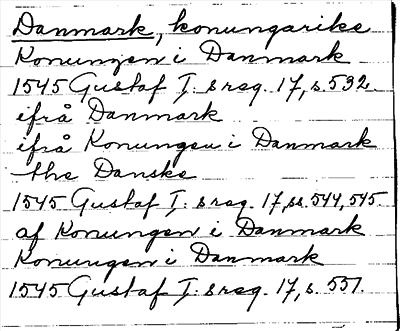 Danmark, konungarike
Konungen i Danmark
1545 Gustaf I. s reg. 17, s. 532.
ifrå Danmark
ifrå Konungen i Danmark
the Danske
1545 Gustaf I. s reg. 17, ss. 544, 545.
af Konungen i Danmark
Konungen i Danmark
1545 Gustaf I. s reg. 17, s. 557.